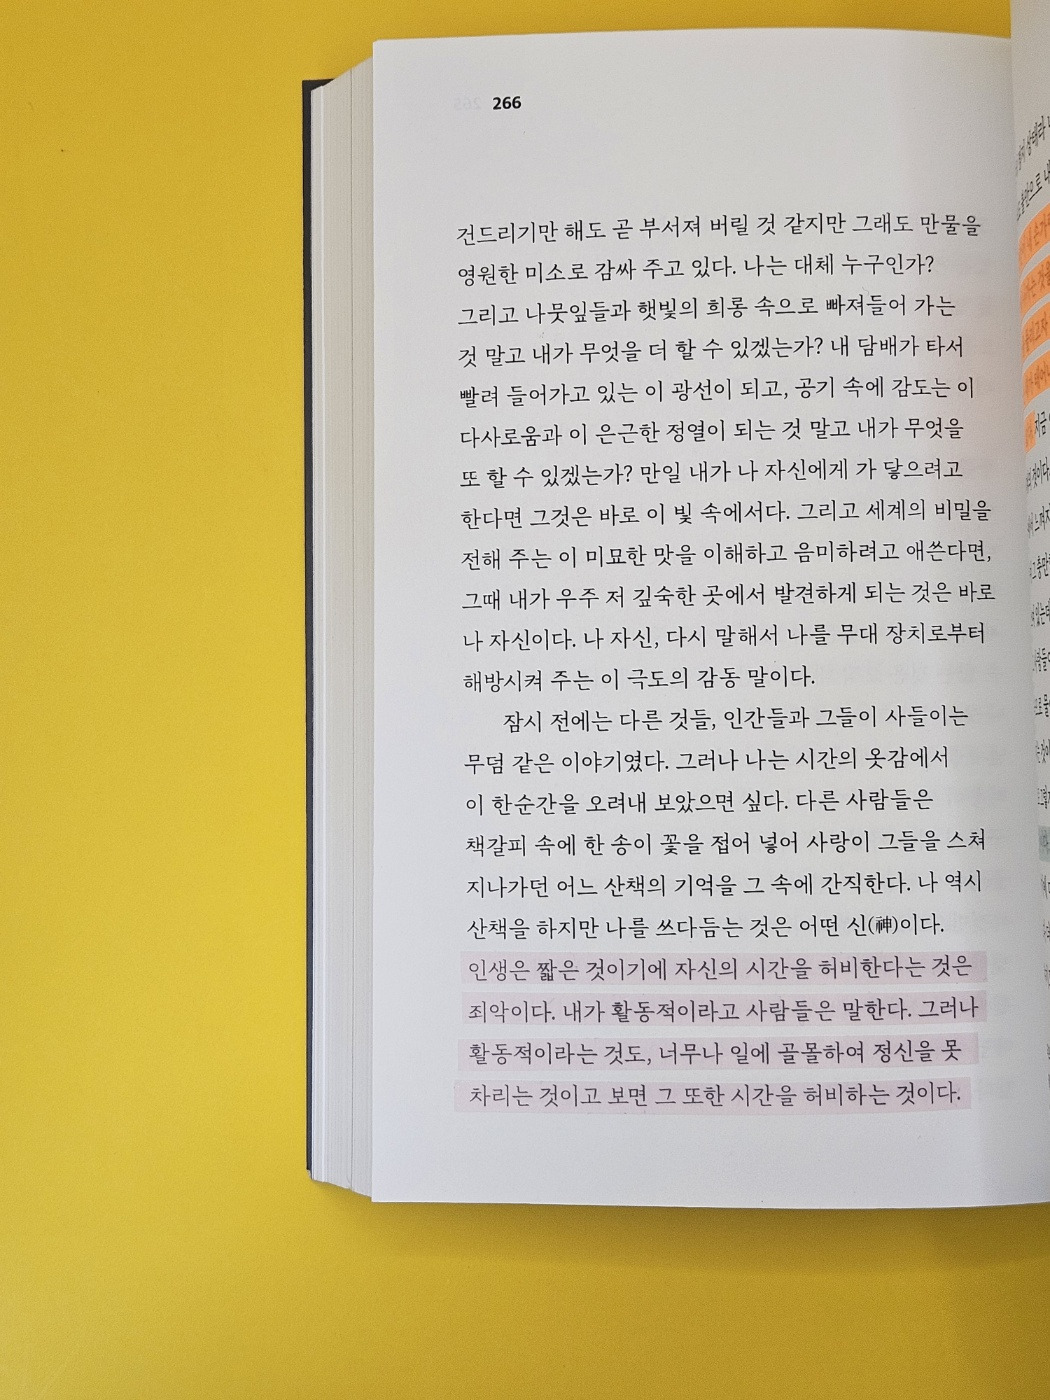 266
건드리기만 해도 곧 부서져 버릴 것 같지만 그래도 만물을
영원한 미소로 감싸 주고 있다. 나는 대체 누구인가?
그리고 나뭇잎들과 햇빛의 희롱 속으로 빠져들어 가는
것 말고 내가 무엇을 더 할 수 있겠는가? 내 담배가 타서
빨려 들어가고 있는 이 광선이 되고, 공기 속에 감도는 이
다사로움과 이 은근한 정열이 되는 것 말고 내가 무엇을
또 할 수 있겠는가? 만일 내가 나 자신에게 가 닿으려고
한다면 그것은 바로 이 빛 속에서다. 그리고 세계의 비밀을
전해 주는 이 미묘한 맛을 이해하고 음미하려고 애쓴다면,
그때 내가 우주 저 깊숙한 곳에서 발견하게 되는 것은 바로
나 자신이다. 나 자신, 다시 말해서 나를 무대 장치로부터
해방시켜 주는 이 극도의 감동 말이다.
잠시 전에는 다른 것들, 인간들과 그들이 사들이는
무덤 같은 이야기였다. 그러나 나는 시간의 옷감에서
이 한순간을 오려내 보았으면 싶다. 다른 사람들은
책갈피 속에 한 송이 꽃을 접어 넣어 사랑이 그들을 스쳐
지나가던 어느 산책의 기억을 그 속에 간직한다. 나 역시
산책을 하지만 나를 쓰다듬는 것은 어떤 신(神)이다.
인생은 짧은 것이기에 자신의 시간을 허비한다는 것은
죄악이다. 내가 활동적이라고 사람들은 말한다. 그러나
활동적이라는 것도, 너무나 일에 골몰하여 정신을 못
차리는 것이고 보면 그 또한 시간을 허비하는 것이다.